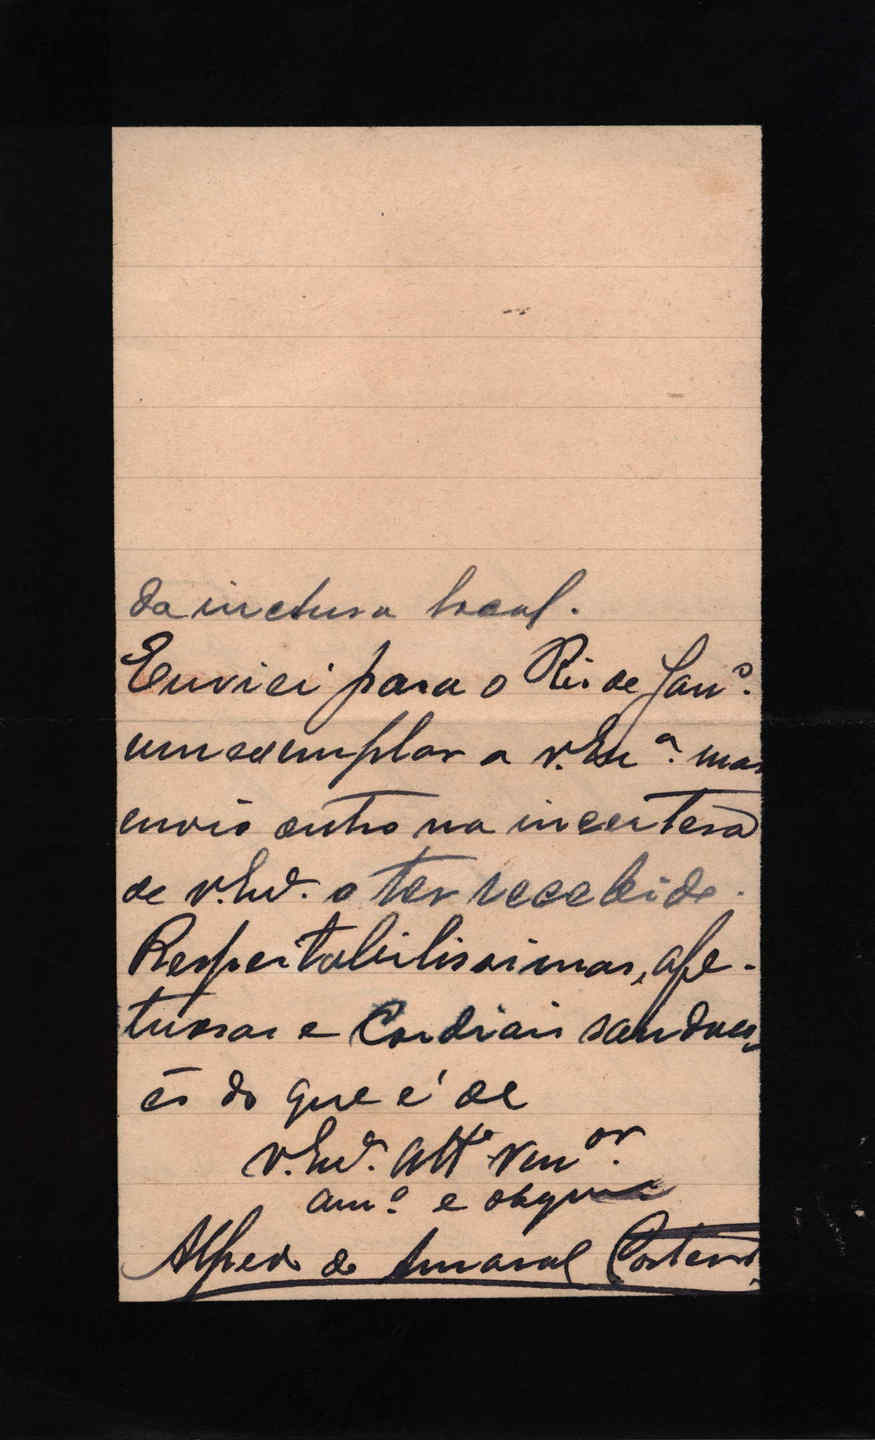 da incluso local.
Enviei para o Rio de Janº.
um exemplar a v. Exª. mas
envio outro na incertesa
de v. Exª. o ter recebido.
Respeitabilissimas, afe-
tuosas e Cordiais saudaç-
ões do que é de
v. Exª. attº venºr.
amº e obgº
Alfredo do Amaral